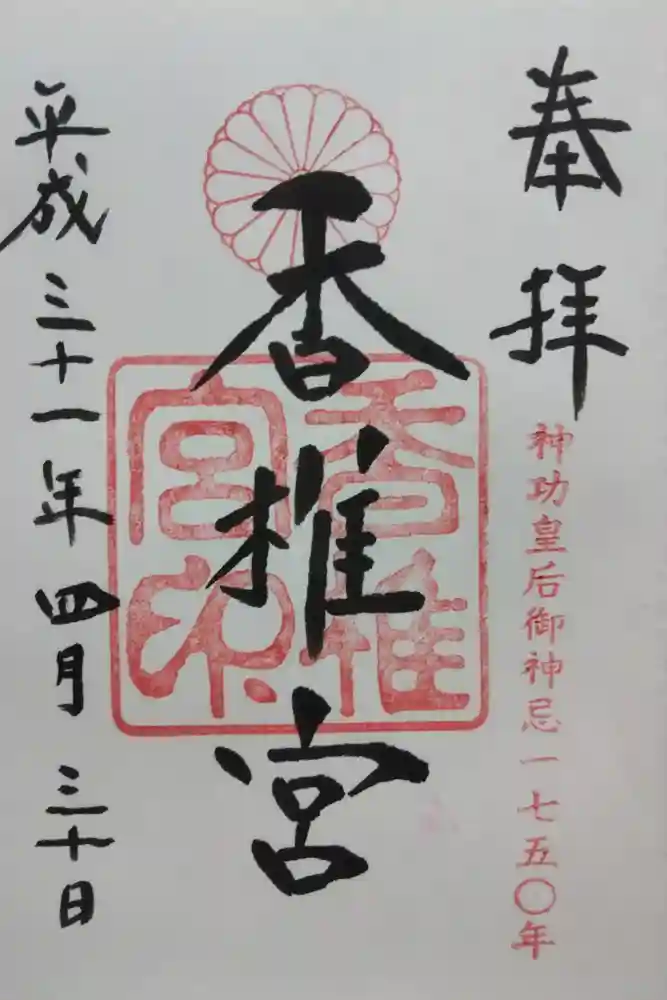 奉拝
神功皇后御神忌一七五〇年
香椎宮
香椎宮印
平成三十一年四月三十日